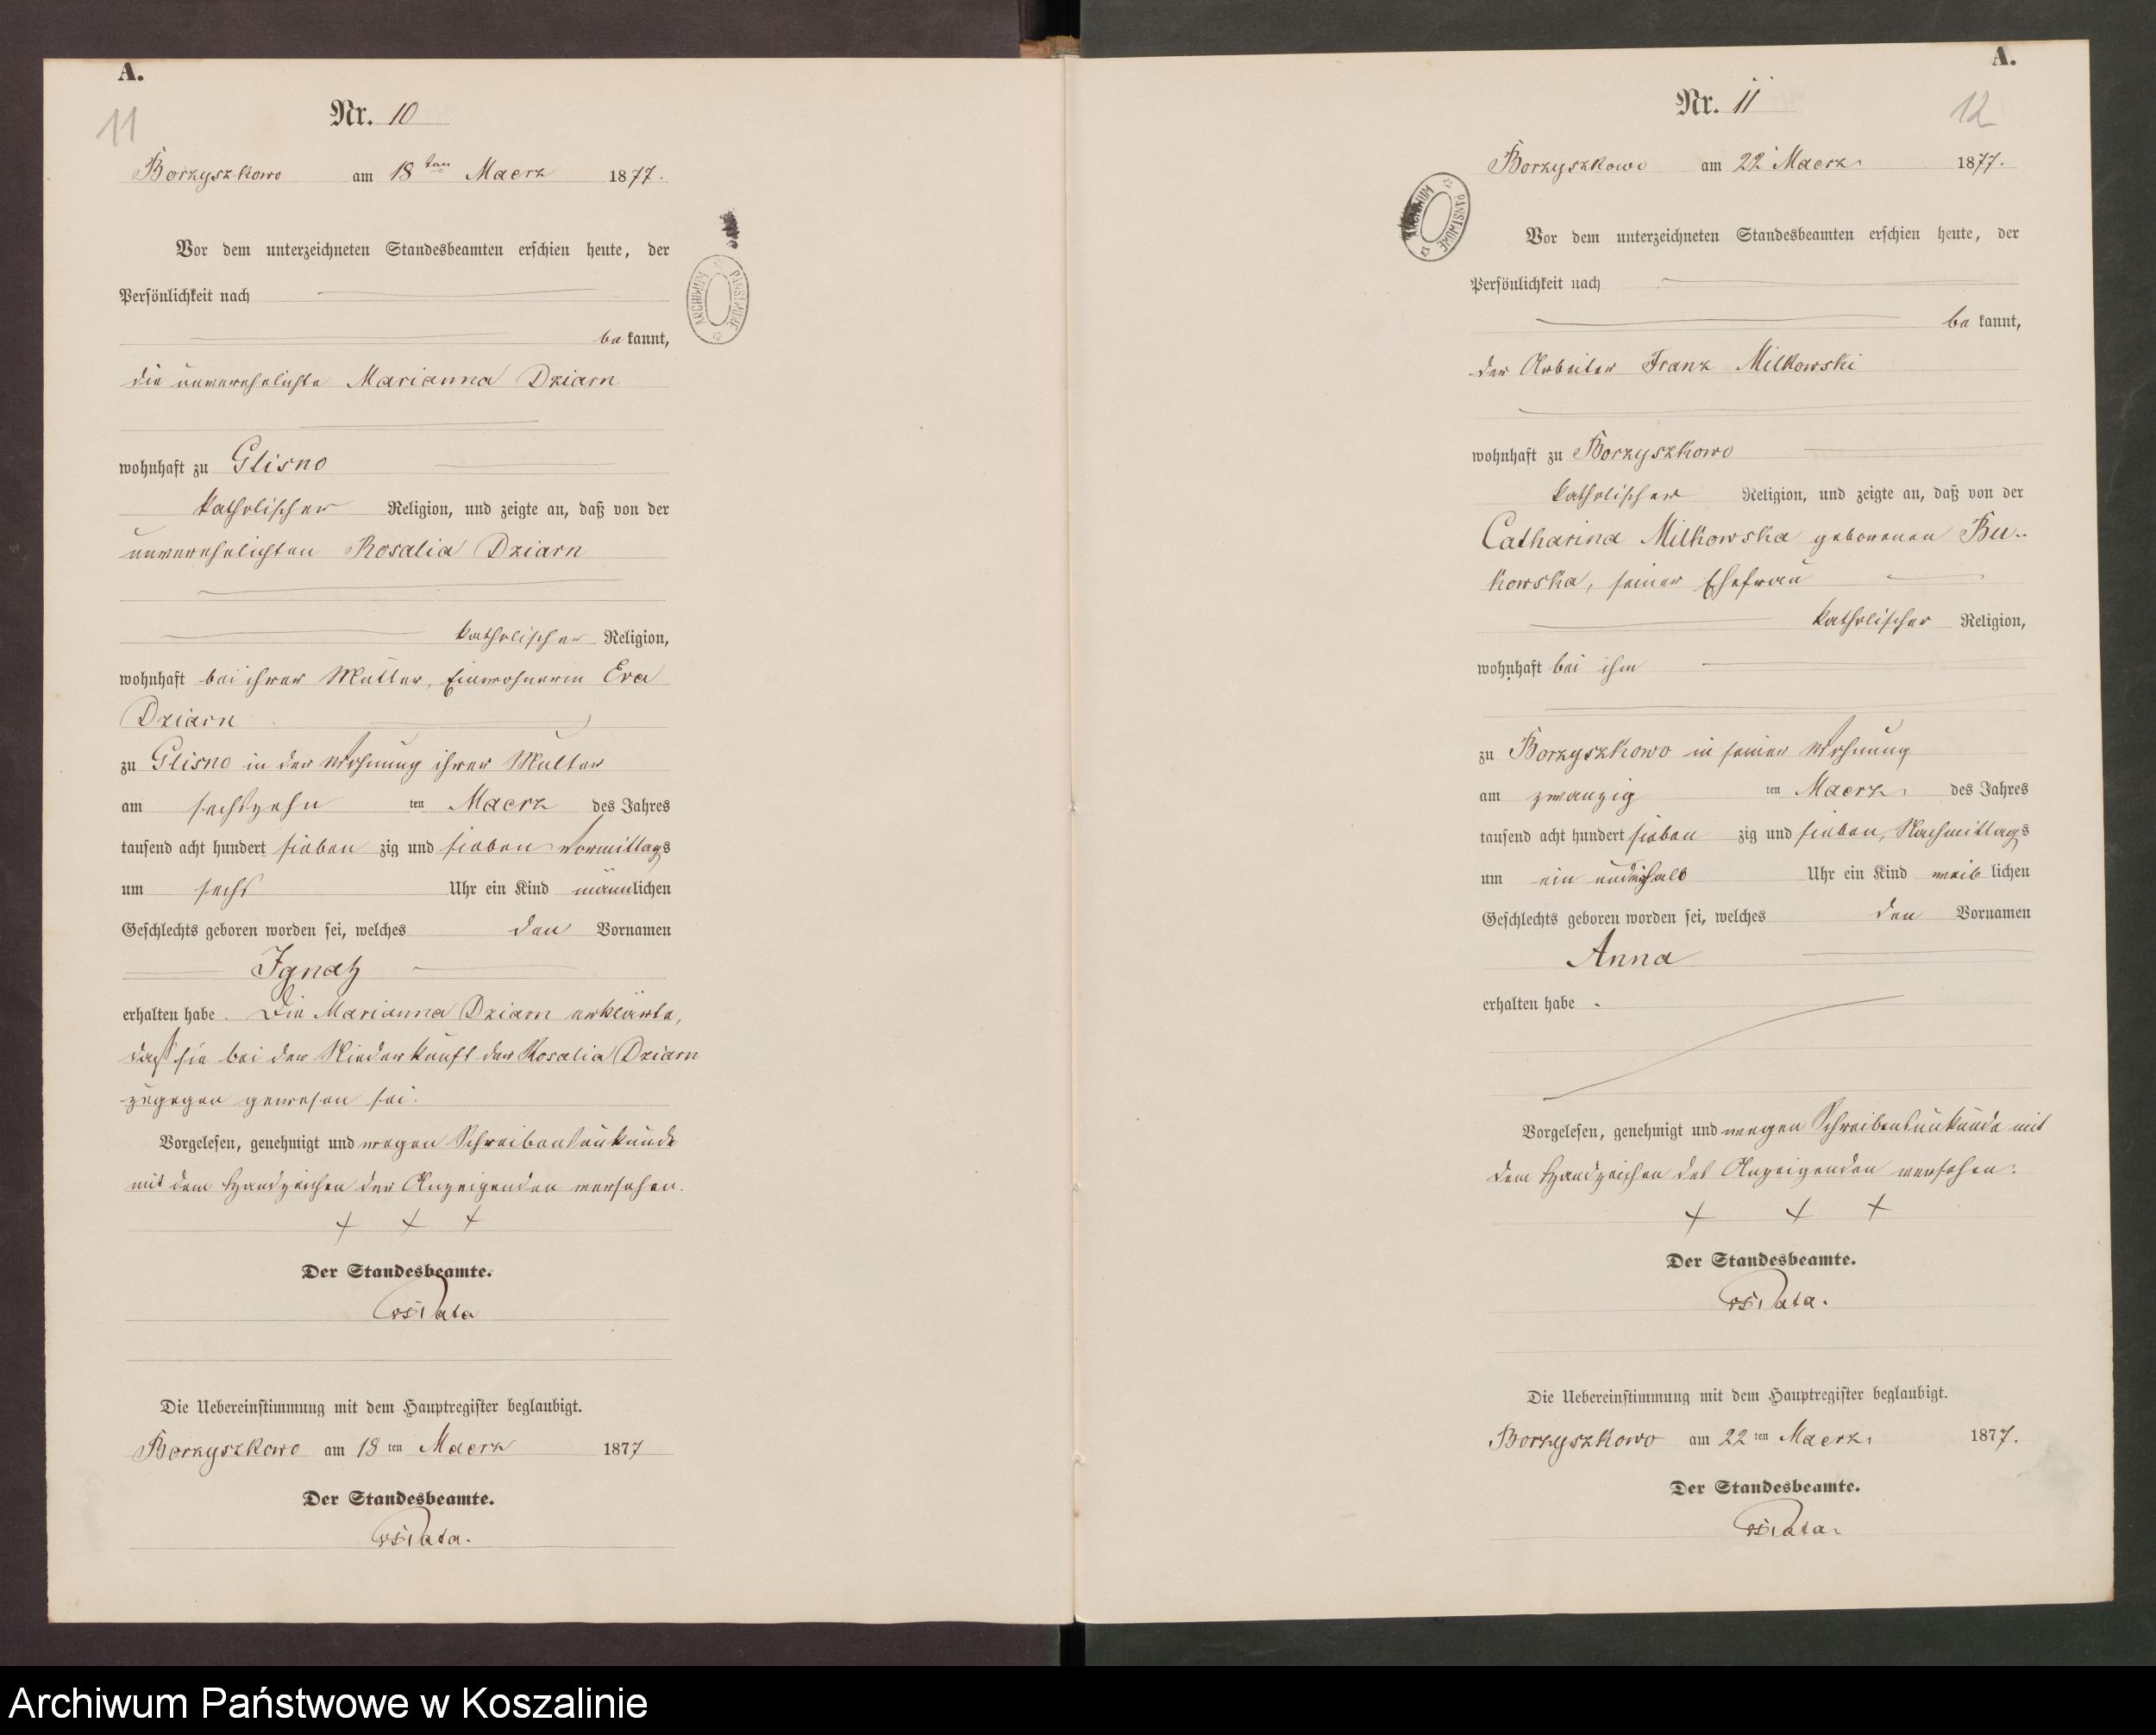 A.
11
Nr. 10
Borzyszkowo am 18ten Maerz 1877.
Vor dem unterzeichneten Standesbeamten erschien heute, der
Persönlichkeit nach
be kannt,
die unverehelichte Marianna Dziarn
wohnhaft zu Glisno
katholischer Religion, und zeigte an, daß von der
unverehelichten Rosalia Dziarn
katholischer Religion,
wohnhaft bei ihrer Mutter, Einwohnerin Eva
Dziarn
zu Glisno in der Wohnung ihrer Mutter
am sechszehn ten Maerz des Jahres
tausend acht hundert sieben zig und sieben Vormittags
um sechs Uhr ein Kind männlichen
Geschlechts geboren worden sei, welches den Vornamen
Ignatz
erhalten habe. Die Marianna Dziarn erklärte,
daß sie bei der Niederkunft der Rosalia Dziarn
zugegen gewesen sei.
Vorgelesen, genehmigt und wegen Schreibensunkunde
mit dem Handzeichen der Anzeigenden versehen.
+ + +
Der Standesbeamte.
Die Uebereinstimmung mit dem Hauptregister beglaubigt.
Borzyszkowo am 18 ten Maerz 1877
Der Standesbeamte.
ARCHIWUM PAŃSTWOWE
A.
12
Nr. 11
Borzyszkowo am 22 Maerz 1877.
ARCHIWUM PAŃSTWOWE
Vor dem unterzeichneten Standesbeamten erschien heute, der
Persönlichkeit nach
be kannt,
der Arbeiter Franz Milkowski
wohnhaft zu Borzyszkowo
katholischer Religion, und zeigte an, daß von der
Catharina Milkowska geborenen Bu-
kowska, seiner Ehefrau
katholischer Religion,
wohnhaft bei ihm
zu Borzyszkowo in seiner Wohnung
am zwanzig ten Maerz des Jahres
tausend acht hundert sieben zig und sieben, Nachmittags
um ein undeinhalb Uhr ein Kind weib lichen
Geschlechts geboren worden sei, welches den Vornamen
Anna
erhalten habe.
Vorgelesen, genehmigt und wegen Schreibensunkunde mit
dem Handzeichen des Anzeigenden versehen.
+ + +
Der Standesbeamte.
Die Uebereinstimmung mit dem Hauptregister beglaubigt.
Borzyszkowo am 22 ten Maerz 1877.
Der Standesbeamte.
Archiwum Państwowe w Koszalinie